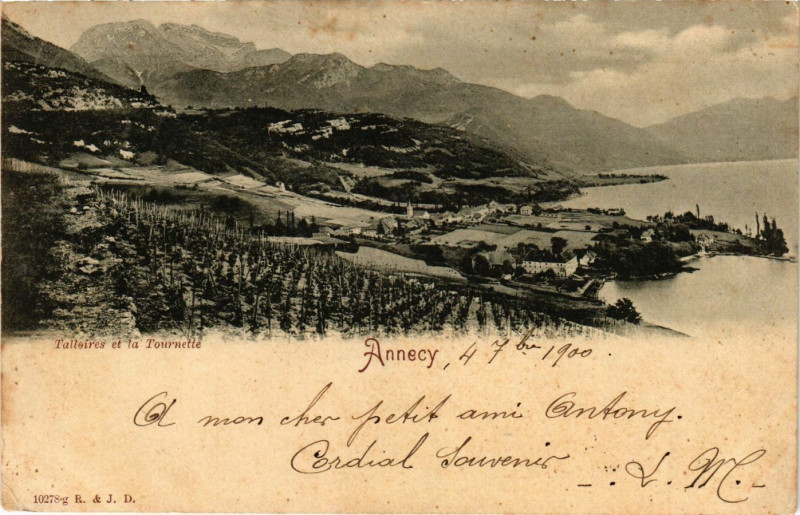 Talloires et la Tournette
Annecy, 4 7bre 1900.
A mon cher petit ami Antony.
Cordial Souvenir
L. M.
10278-g R. & J. D.